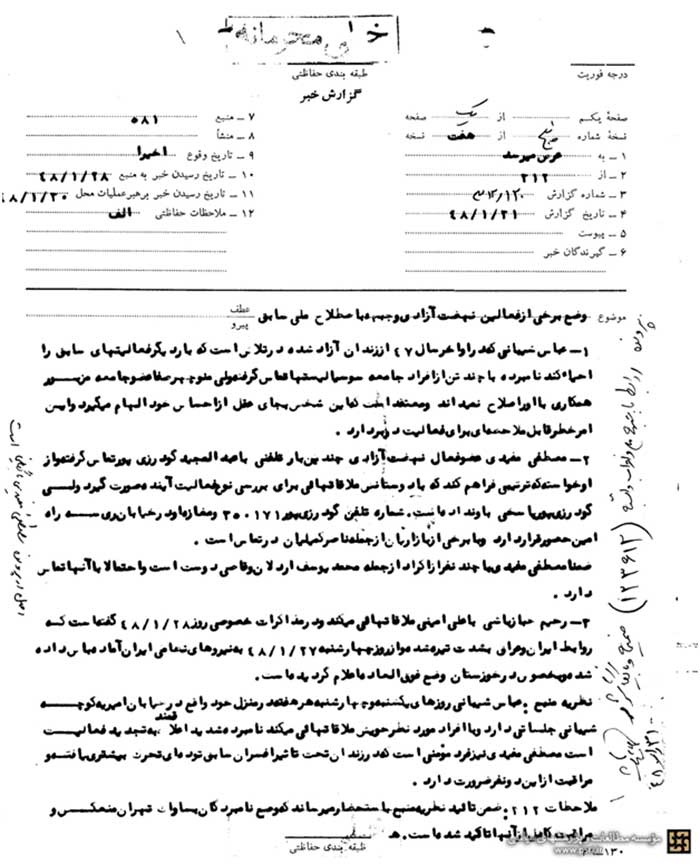 خیلی محرمانه
درجه فوریت
طبقه بندی حفاظتی
گزارش خبر
صفحهٔ یکم از یک صفحه
نسخهٔ شماره پنج از هفت نسخه
۱ ـ به عرض میرسد
۲ ـ از ۳۱۲
۳ ـ شماره گزارش
۴ ـ تاریخ گزارش ۴۸/۱/۳۱
۵ ـ پیوست
۶ ـ گیرندگان خبر
۷ ـ منبع ۵۸۱
۸ ـ منشأ
۹ ـ تاریخ وقوع اخیرا
۱۰ ـ تاریخ رسیدن خبر به منبع ۴۸/۱/۲۸
۱۱ ـ تاریخ رسیدن خبر برهبر عملیات محل ۴۸/۱/۳۰
۱۲ ـ ملاحظات حفاظتی الف
موضوع وضع برخی از فعالین نهضت آزادی و جبهه باصطلاح ملی سابق
عطف
پیرو
۱ـ عباس شیبانی که در اواخر سال ۴۷ از زندان آزاد شده در تلاش است که بار دیگر فعالیتهای سابق را
احیاء کند نامبرده با چند تن از افراد جامعه سوسیالیستها تماس گرفته ولی منوچهر صفا عضو جامعه مزبور
همکاری با او را صلاح نمیداند و معتقد است که این شخص بجای عقل از احساس خود الهام میگیرد و این
امر خطر قابل ملاحظه‌ای برای فعالیت دربردارد .
۲ـ مصطفی مفیدی عضو فعال نهضت آزادی چندین بار تلفنی با عبدالمجید گودرزی پور تماس گرفته و از
او خواسته که ترتیبی فراهم کند که با دوستانش ملاقاتهائی برای بررسی نوع فعالیت آینده صورت گیرد ولی
گودرزی پور پاسخی باو نداده است. شماره تلفن گودرزی پور ۳۵۰۱۷۱ و مغازه او در خیابان ری سه راه
امین حضور قرار دارد و با برخی از بازاریان از جمله ناصر کمیلیان در تماس است .
ضمنا مصطفی مفیدی با چند نفر از اکراد از جمله محمد یوسف اردلان وقاضی دوست است و احتمالا با آنها تماس
دارد .
۳ـ رحیم حیازباشی با علی امینی ملاقاتهائی میکند و در مذاکرات خصوصی روز ۴۸/۱/۲۸ گفته است که
روابط ایران و عراق بشدت تیره شده و از روز چهارشنبه ۴۸/۱/۲۷ به نیروهای نظامی ایران آماده باش داده
شده و بخصوص در خوزستان وضع فوق العاده اعلام گردیده است.
نظریه منبع : عباس شیبانی روزهای یکشنبه و چهارشنبه هر هفته در منزل خود واقع در خیابان امیریه کوچه
شیبانی جلساتی دارد و با افراد مورد نظر خویش ملاقاتهائی میکند نامبرده شدیدا علاقمند به تجدید فعالیت
است مصطفی مفیدی نیز فرد مؤمنی است که در زندان تحت تاثیر افسران سابق توده‌ای تحرک بیشتری یافته و
مراقبت از این دو نفر ضرورت دارد .
ملاحظات ۳۱۲ : ضمن تائید نظریه منبع باستحضار میرساند که وضع نامبردگان بساواک تهران منعکس و
مراقبت کامل از آنها تاکید شده است. ه
طبقه بندی حفاظتی
مؤسسه مطالعات و پژوهشهای سیاسی